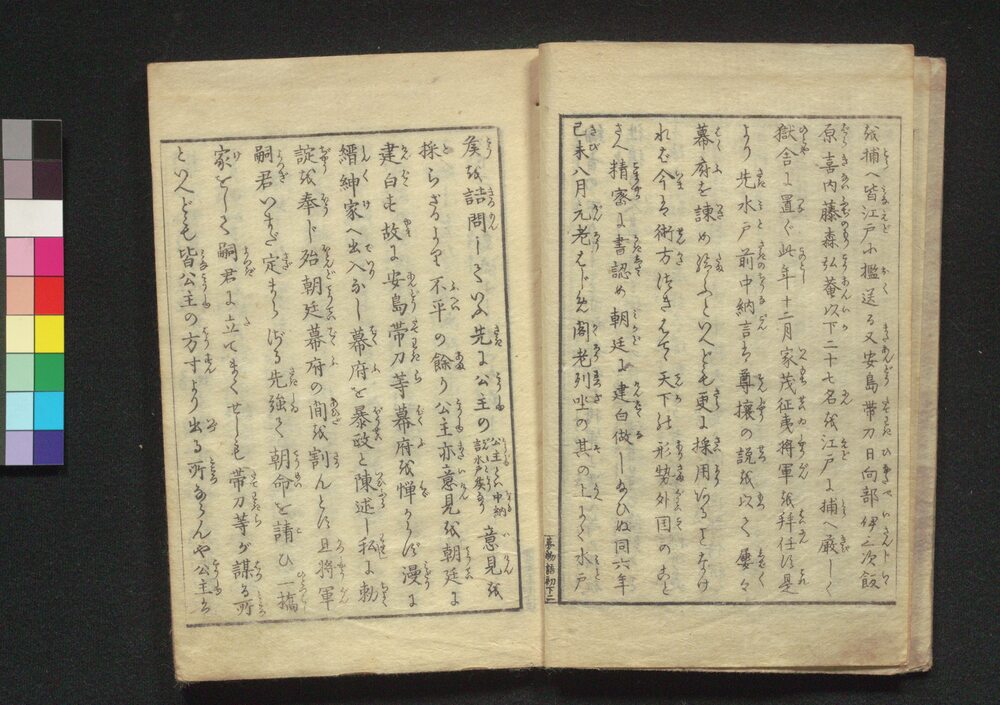 を捕へ皆江戸に檻送る又安島帯刀日向部伊三次飯
原喜内藤森弘菴以下二十七名を江戸に捕へ厳しく
獄舎に置く此年十二月家茂征夷将軍を拝任す是
より先水戸前中納言は尊攘の説を以て屡々
幕府を諫め給ふといへども更に採用ゐることなけ
れば今は術方つきはて天下の形勢外国のこと
さへ精密に書認め朝廷に建白做し給ひぬ同六年
己未八月元老はじめ閣老列坐の其の上にて水戸
夢物語初下二
矦を詰問していふ先に公主の
公主とは中納
言水戸矦なり
意見を
採らざるより不平の餘り公主亦意見を朝廷に
建白す故に安島帯刀等幕府を憚からず漫に
縉紳家へ出入なし幕府を暴政と陳述し私に勅
諚を奉じ殆朝廷幕府の間を割んとす且将軍
嗣君いまだ定まらざる先強て朝命を請ひ一橋
家をして嗣君に立てまくせしも帯刀等が謀る所
といへども皆公主の方寸より出る所ならんや公主は